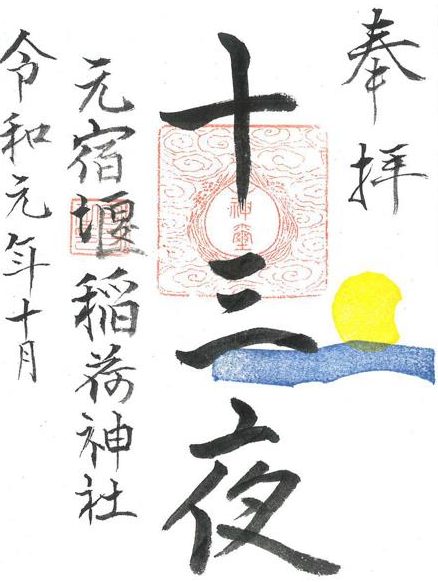 奉拝
十三夜
元宿堰稲荷神社
令和元年十月
神璽